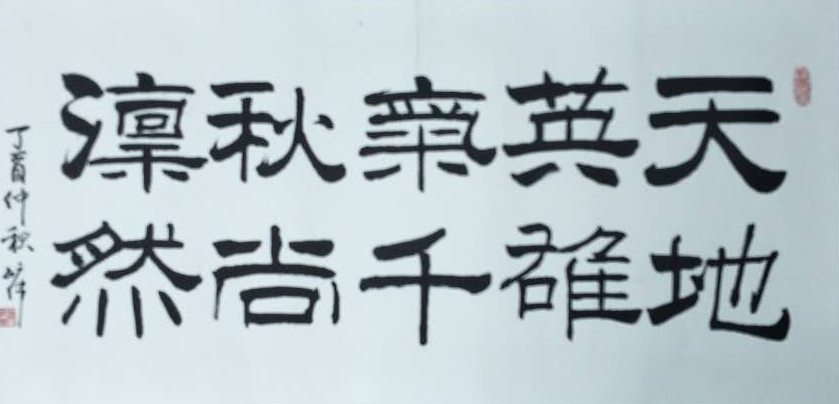 天地
英雄
氣千
秋尚
凛然
丁酉仲秋